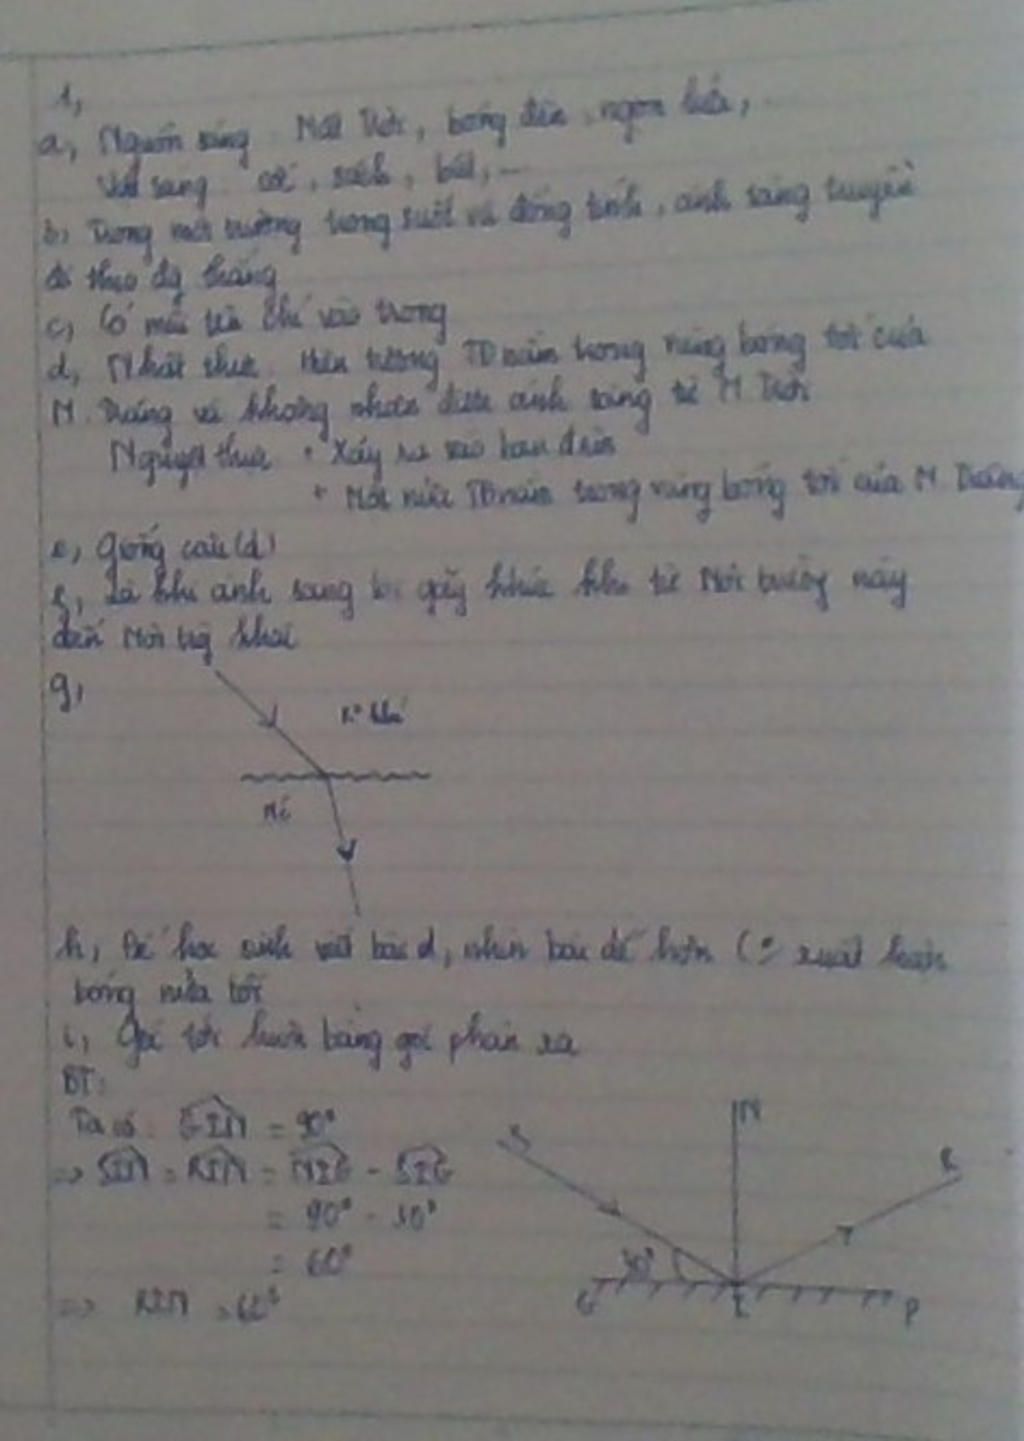 1,
a, Nguồn sáng: Mặt Trời, bóng đèn, ngọn lửa,
Vật sáng: sách, bút, ...
b, Trong môi trường trong suốt và đồng tính, ánh sáng truyền
đi theo đg thẳng
c, Có mũi tên chỉ vào trong
d, Nhật thực: Hiện tượng TĐ nằm trong vùng bóng tối của
M. Trăng và không nhận được ánh sáng từ M Trời
Nguyệt thực + Xảy ra vào ban đêm
+ Một nửa TĐ nằm trong vùng bóng tối của M. Trăng
e, Giống câu (d)
f, Là khi ánh sáng bị gãy khúc khi từ Môi trường này
đến Môi trg khác
g,
K° khí
Nc
h, Để học sinh viết bài đ, nhìn bài dễ hơn (: xuất hiện
bóng nửa tối
i, Góc tới luôn bằng góc phản xạ
BT:
Ta có: GIN = 90°
=> SIN = RIN = NIG - SIG
= 90° - 30°
= 60°
=> RIN = 60°
S
N
R
30°
G
I
P